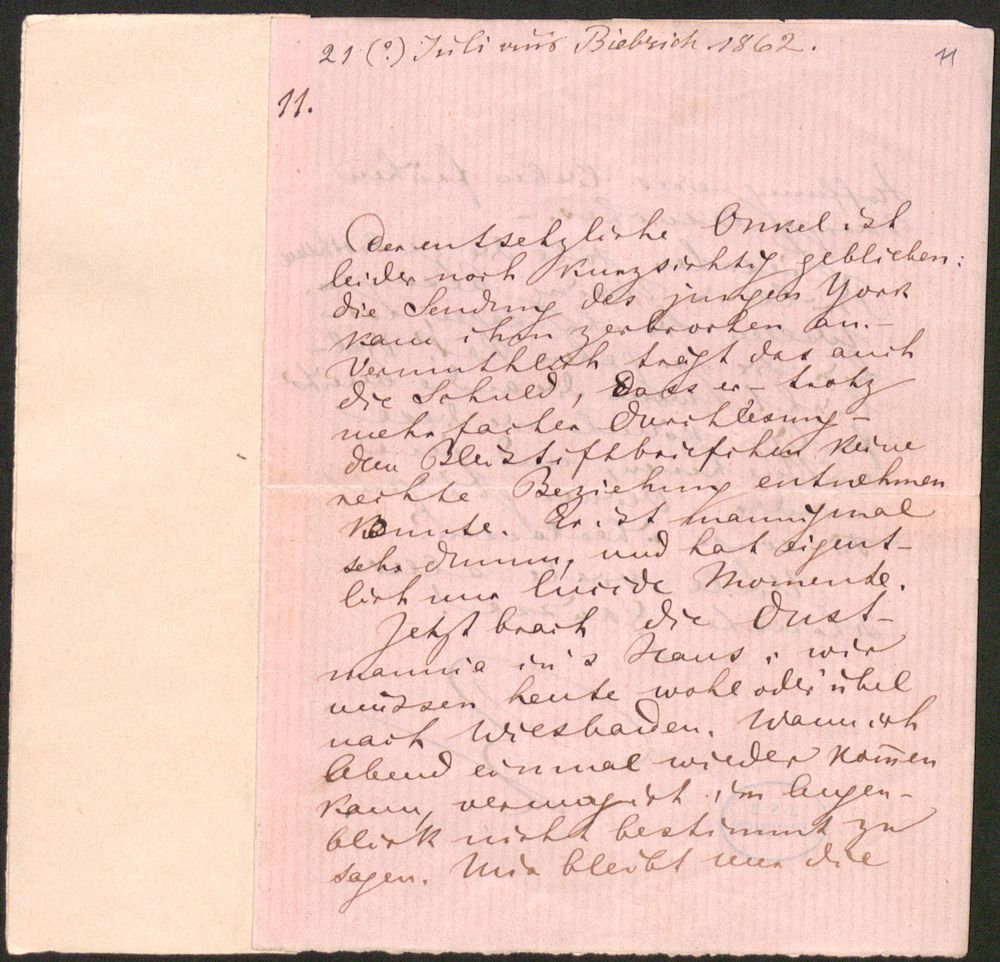 21 (?) Juli aus Biebrich 1862.
11
11.
Der entsetzliche Onkel ist
leider noch kurzsichtig geblieben:
die Sendung des jungen York
kam ihm zerbrochen an. –
Vermuthlich trägt das auch
die Schuld, dass er – trotz
mehrfacher Durchlesung –
dem Bleistiftbriefchen keine
rechte Beziehung entnehmen
konnte. Er ist mannigmal
sehr dumm, und hat eigent-
lich nur lucide Momente.
Jetzt brach die Dust-
mannia in's Haus: wir
müssen heute wohl oder übel
nach Wiesbaden. Wann ich
Abend einmal wieder kom̅en
kann, vermag ich im Augen-
blick nicht bestimmt zu
sagen. Mir bleibt nur die